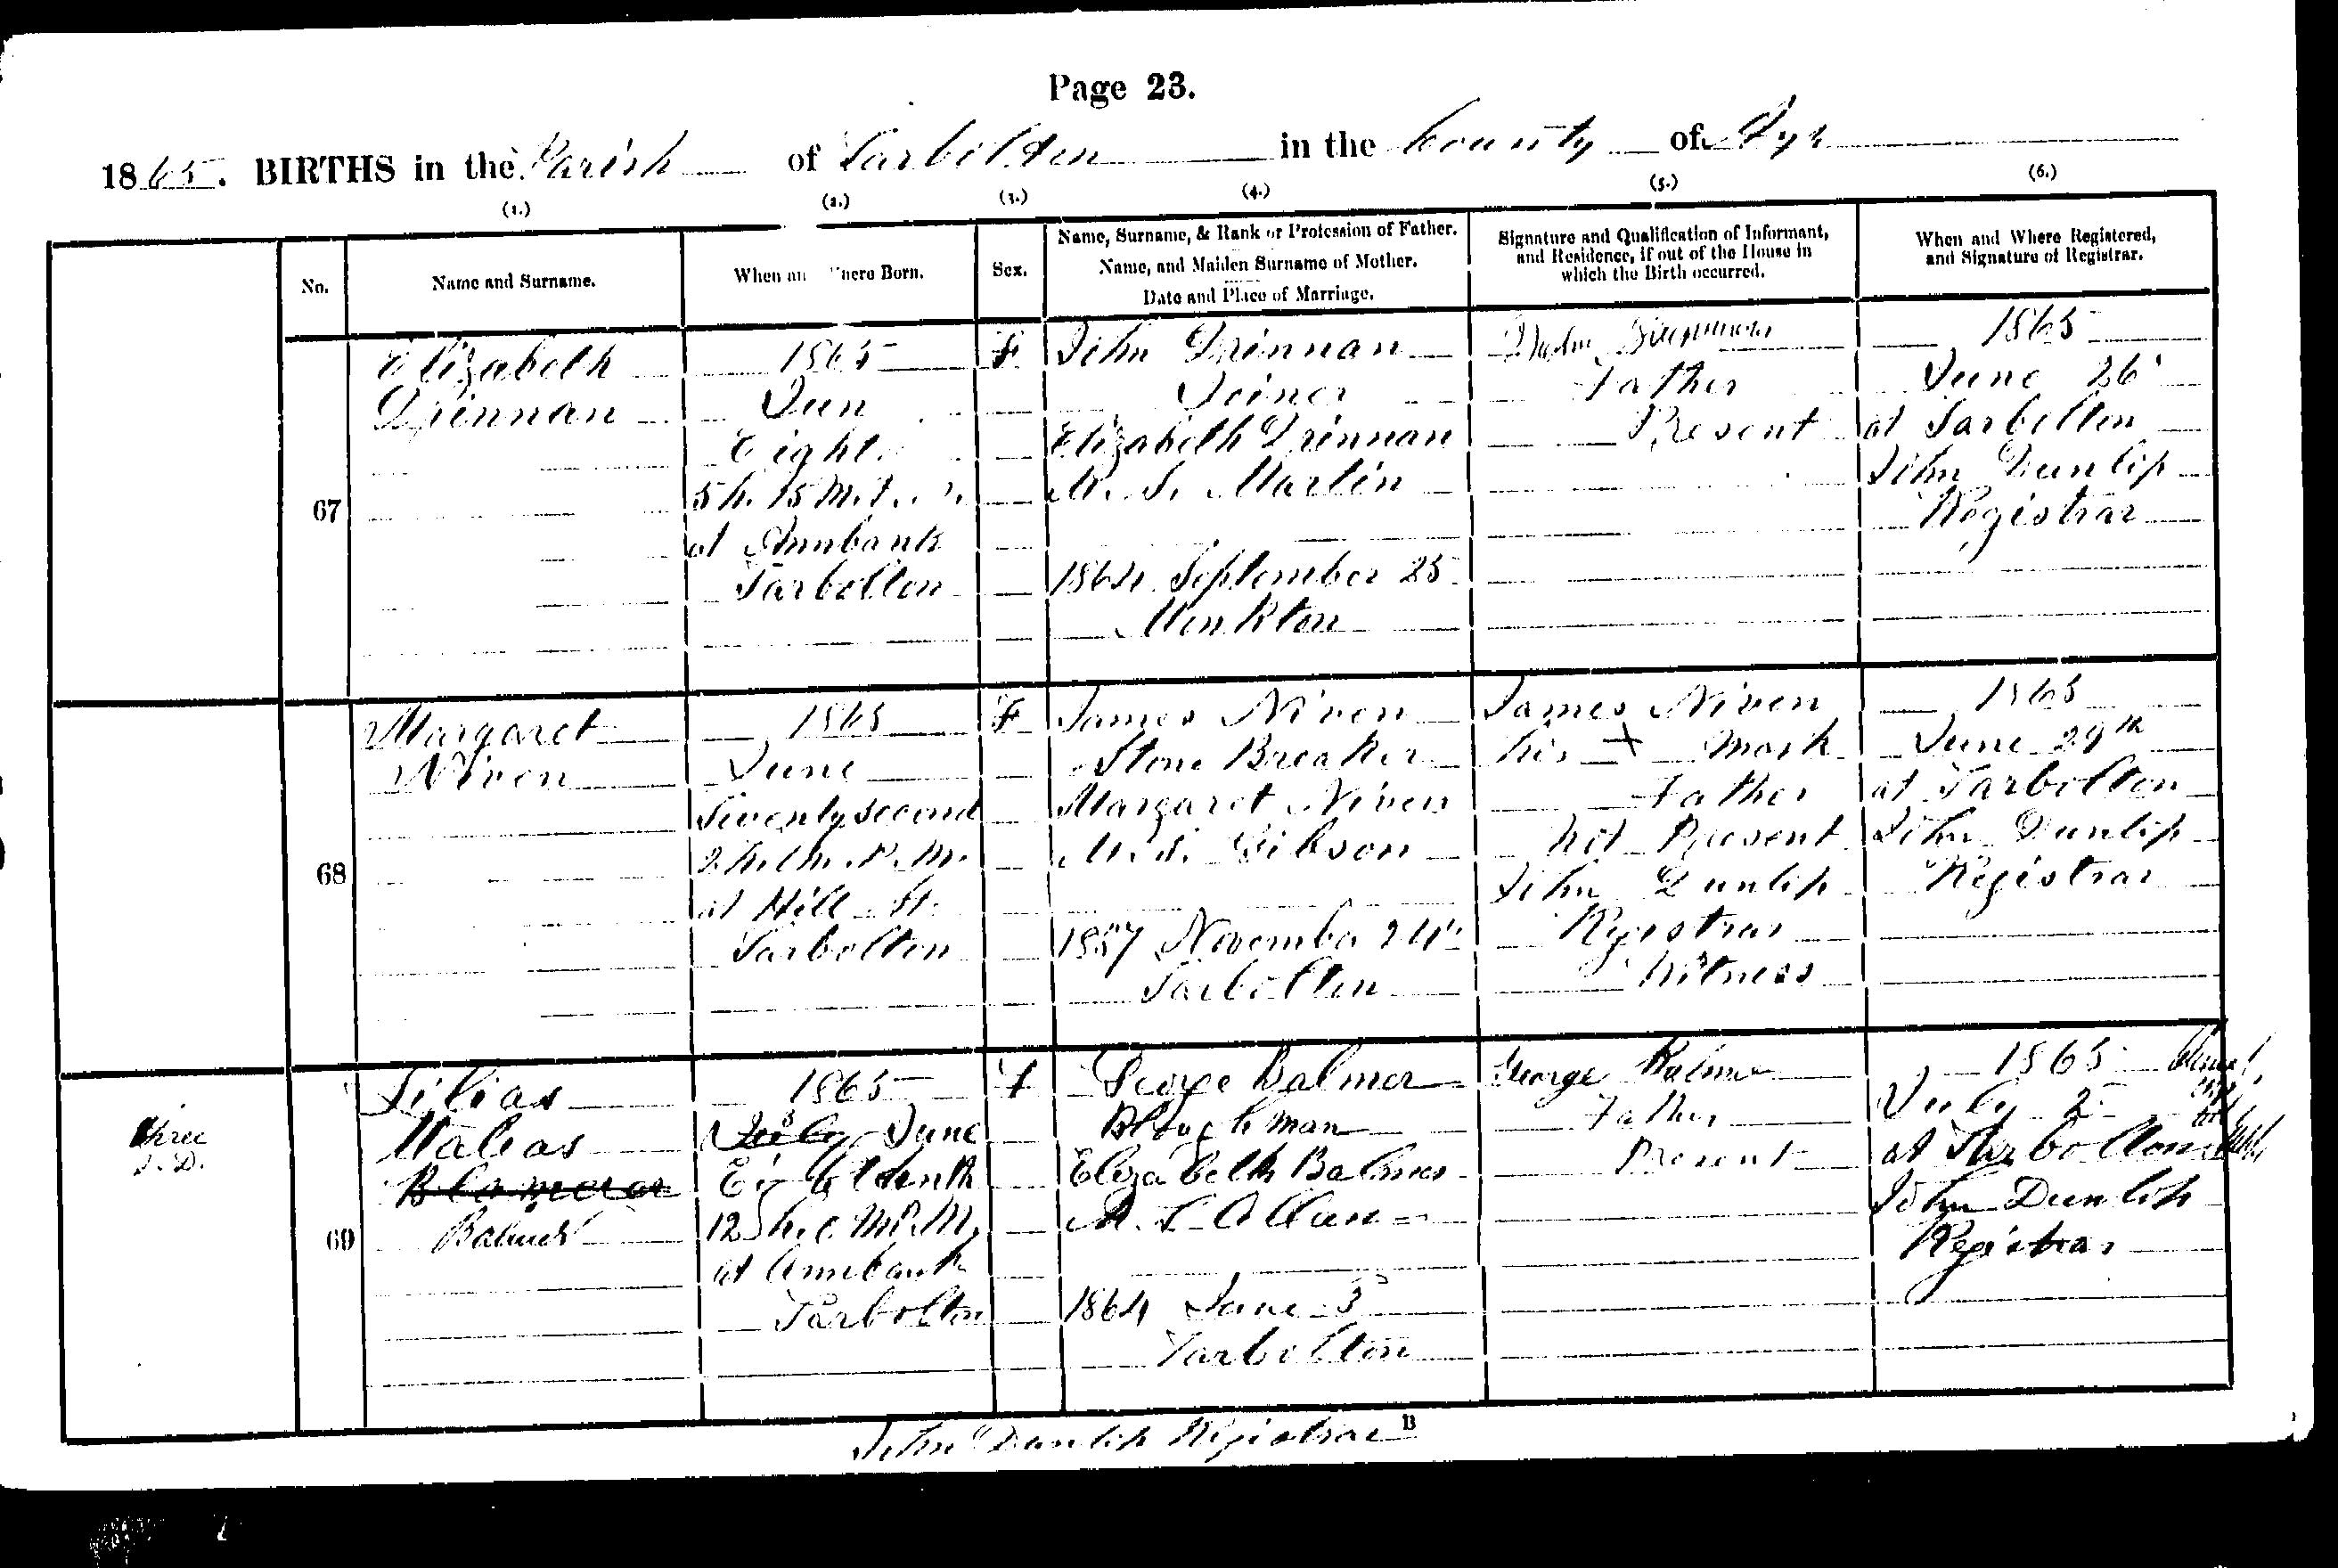 Page 23.
1865. BIRTHS in the Parish of Tarbolton in the County of Ayr
(1.) (2.) (3.) (4.) (5.) (6.)
No.
Name and Surname.
When an Where Born.
Sex.
Name, Surname, & Rank or Profession of Father.
Name, and Maiden Surname of Mother.
Date and Place of Marriage.
Signature and Qualification of Informant,
and Residence, if out of the House in
which the Birth occurred.
When and Where Registered,
and Signature of Registrar.
67
Elizabeth
Drinnan
1865
Jun
Eight
5 h. 15 m.
at Annbank
Tarbolton
F
John Drinnan
Joiner
Elizabeth Drinnan
M. S. Martin
1864 September 25
Monkton
John Drinnan
Father
Present
1865
June 26
at Tarbolton
John Dunlop
Registrar
68
Margaret
Niven
1865
June
Twenty second
2 h. 0 m. P.M.
at Hill St.
Tarbolton
F
James Niven
Stone Breaker
Margaret Niven
M. S. Gibson
1857 November 24
Tarbolton
James Niven
his + mark
Father
not Present
John Dunlop
Registrar
Witness
1865
June 29th
at Tarbolton
John Dunlop
Registrar
Three
J. D.
69
Lilias
Walias
Balmer
1865
July June
Eighteenth
12 h. 0 m P.M.
at Annbank
Tarbolton
F
George Balmer
Ploughman
Elizabeth Balmer
M. S. Allan
1864 June 3
Tarbolton
George Balmer
Father
Present
1865
July 2
at Tarbolton
John Dunlop
Registrar
John Dunlop Registrar
B